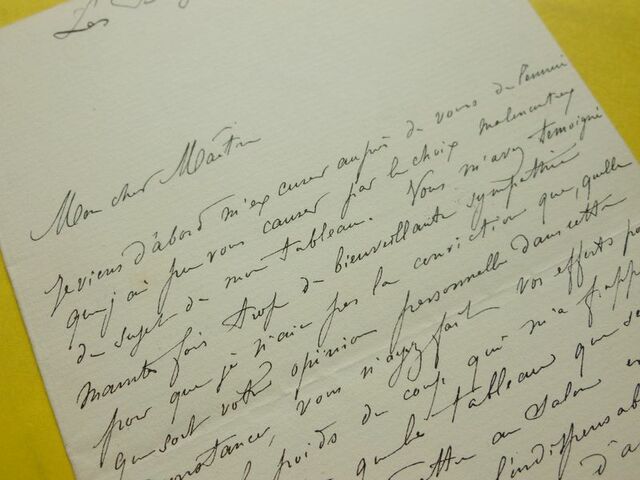 Les
Mon cher Maître
Je viens d'abord m'excuser auprès de vous de l'ennui
que j'ai pu vous causer par le choix malencontreux
du sujet de mon tableau. Vous m'avez témoigné
mainte fois trop de bienveillante sympathie
pour que je n'aie pas la conviction que, quelle
que soit votre opinion personnelle dans cette
constance, vous n'ayez fait vos efforts po
poids du coup qui m'a frapp
que le tableau que se
ettre au Salon e
l'indispensab
d'a